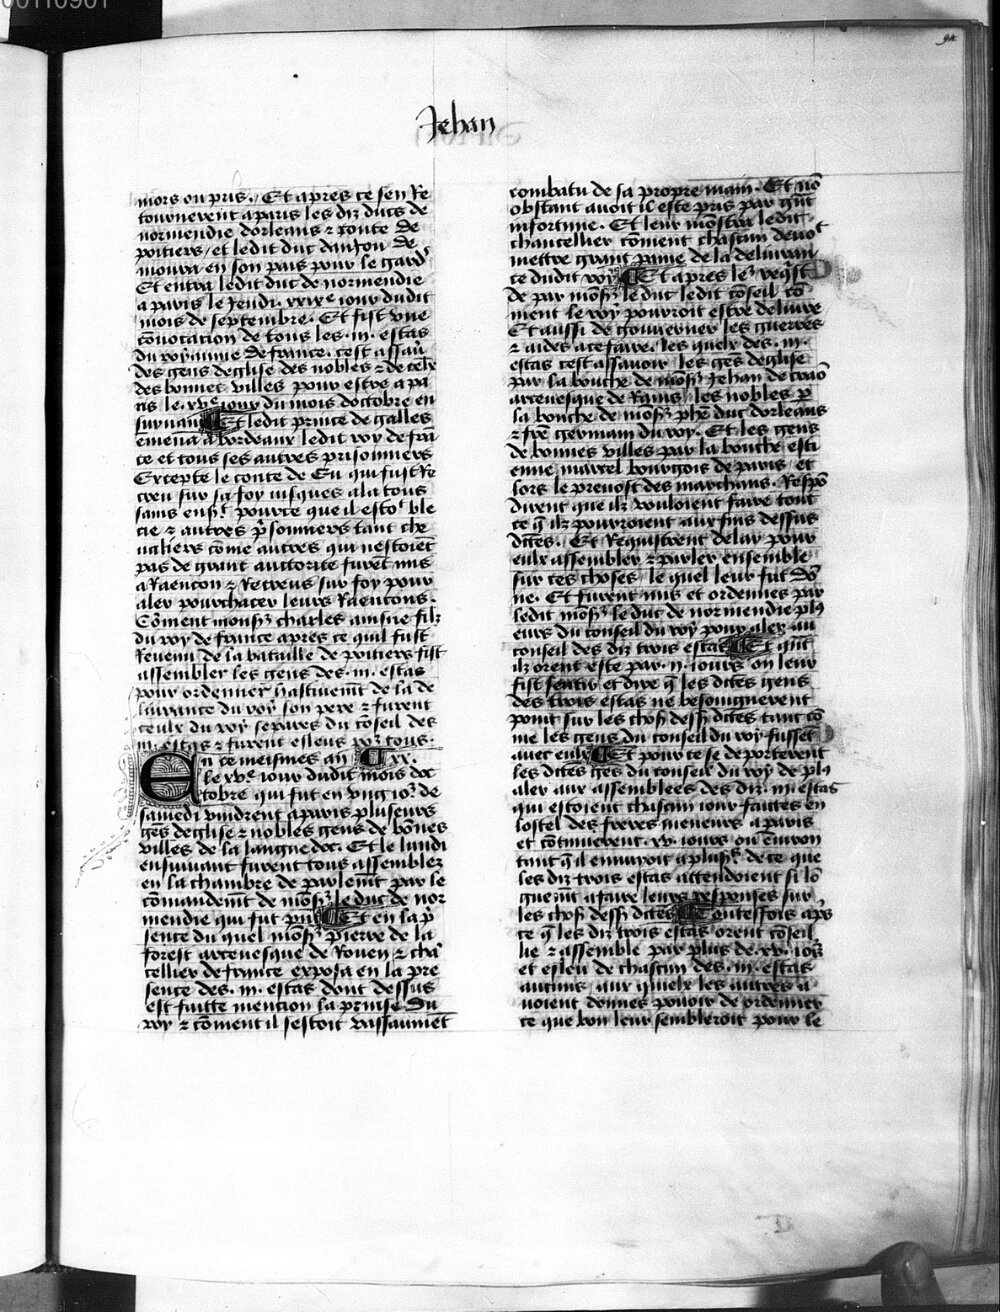 00110901
94
Jehan
mors ou pris. Et apres ce sen Re
tournerent a paris les diz ducs de
normendie dorleans ⁊ conte de
poitiers / et ledit duc danjou de
moura en son pais pour le gard
Et entra ledit duc de normendie
a paris le Jeudi .xxixe jour dudit
mois de septembre. Et fist une
cōvocation de tous les .iii. estas
du royaume de france. cest assau
des gens deglise des nobles ⁊ de ceulx
des bonnes villes pour estre a pa
ris le .xve jour du mois doctobre en
suivant ¶ Et ledit prince de galles
emena a bordeaux ledit roy de frā
ce et tous ses autres prisonniers
Excepte le conte de Eu qui fust Re
creu sur sa foy jusques a la tous
sains ens. pource que il estoit ble
cie ⁊ autres psonniers tant che
valiers cōme autres qui nestoiēt
pas de grant auctorite furēt mis
a Raencon ⁊ Recreus sur foy pour
aler pourchacer leurs Raencons.
Cōment monsr charles ainsne filz
du roy de france apres ce quil fust
Revenu de la bataille de poitiers fist
assembler les gens des .iii. estas
pour ordenner hastivemt de la de
livrance du roy son pere ⁊ furent
ceulx du roy separes du cōseil des
iii. estas ⁊ furent esleus por tous.
En ce meismes an ¶ xx.
le xve jour dudit mois doc
tobre qui fut en ung jor de
samedi vindrent a paris pluseurs
gēs deglise ⁊ nobles gens de bōnes
villes de la languedoc. Et le lundi
ensuivant furent tous assemblez
en la chambre de parlemt par le
cōmandemt de mōsr le duc de nor
mendie qui fut pnt ¶ Et en la p
sence du quel mōsr pierre de la
forest arcevesque de Rouen ⁊ chā
cellier de france exposa en la pre
sence des .iii. estas dont dessus
est faitte mention la prinse du
roy ⁊ cōment il sestoit vassaumēt
combatu de sa propre main. Et nō
obstant avoit il este pris par grāt
infortune. Et leur mōstra ledit
chancellier cōment chascun devoit
mettre grant paine de la delivran
ce dudit roy ¶ Et apres le reqst
de par mōsr le duc ledit cōseil cō
ment le roy pourroit estre delivre
Et aussi de gouverner les guerres
⁊ aides a ce faire. les quelx des .iii.
estas cest assavoir les gēs deglise
par la bouche de mōsr Jehan de craō
arcevesque de Rains les nobles p
la bouche de mōsr phe duc dorleans
⁊ frē germain du roy. Et les gens
de bonnes villes par la bouche esti
enne marcel bourgois de paris et
lors le prevost des marchans. Respō
dirent que ilz vouloient faire tout
ce q ilz pourroient aux fins dessus
dites. Et Requistrent delay pour
eulx assembler ⁊ parler ensemble
sur ces choses le quel leur fut dō
ne. Et furent mis et ordennes par
ledit mōsr le duc de normendie plus
eurs du conseil du roy pour aler au
conseil des diz trois estas ¶ Et qnt
ilz orent este par .ii. jours on leur
fist sentir et dire q les dites gens
des trois estas ne besoigneroient
point sur les chos dess dites tant cō
me les gens du conseil du roy fussēt
avec eulx ¶ Et pour ce se deporterent
les dites gēs du conseil du roy de plus
aler aux assemblees des diz .iii. estas
qui estoient chascun jour faittes en
lostel des freres meneurs a paris
et cōtinuerent .xv. jours ou environ
tant q il ennuyoit a plusrs de ce que
les diz trois estas attendoient si lō
guemt a faire leurs responses sur
les chos dess dites ¶ Toutesfois aps
ce q les diz trois estas orent cōseil
lie ⁊ assemble par plus de .xv. jors
et esleu de chascun des .iii. estas
aucuns aux quelx les autres a
voient donnes povoir de ordenner
ce que bon leur sembleroit pour le